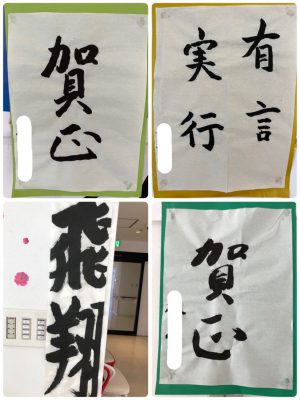 賀正
有言
実行
飛翔
賀正